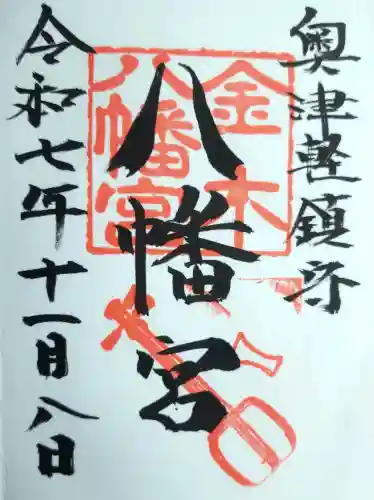 奥津軽鎮守
金木
八幡宮
八幡宮
令和七年十一月八日